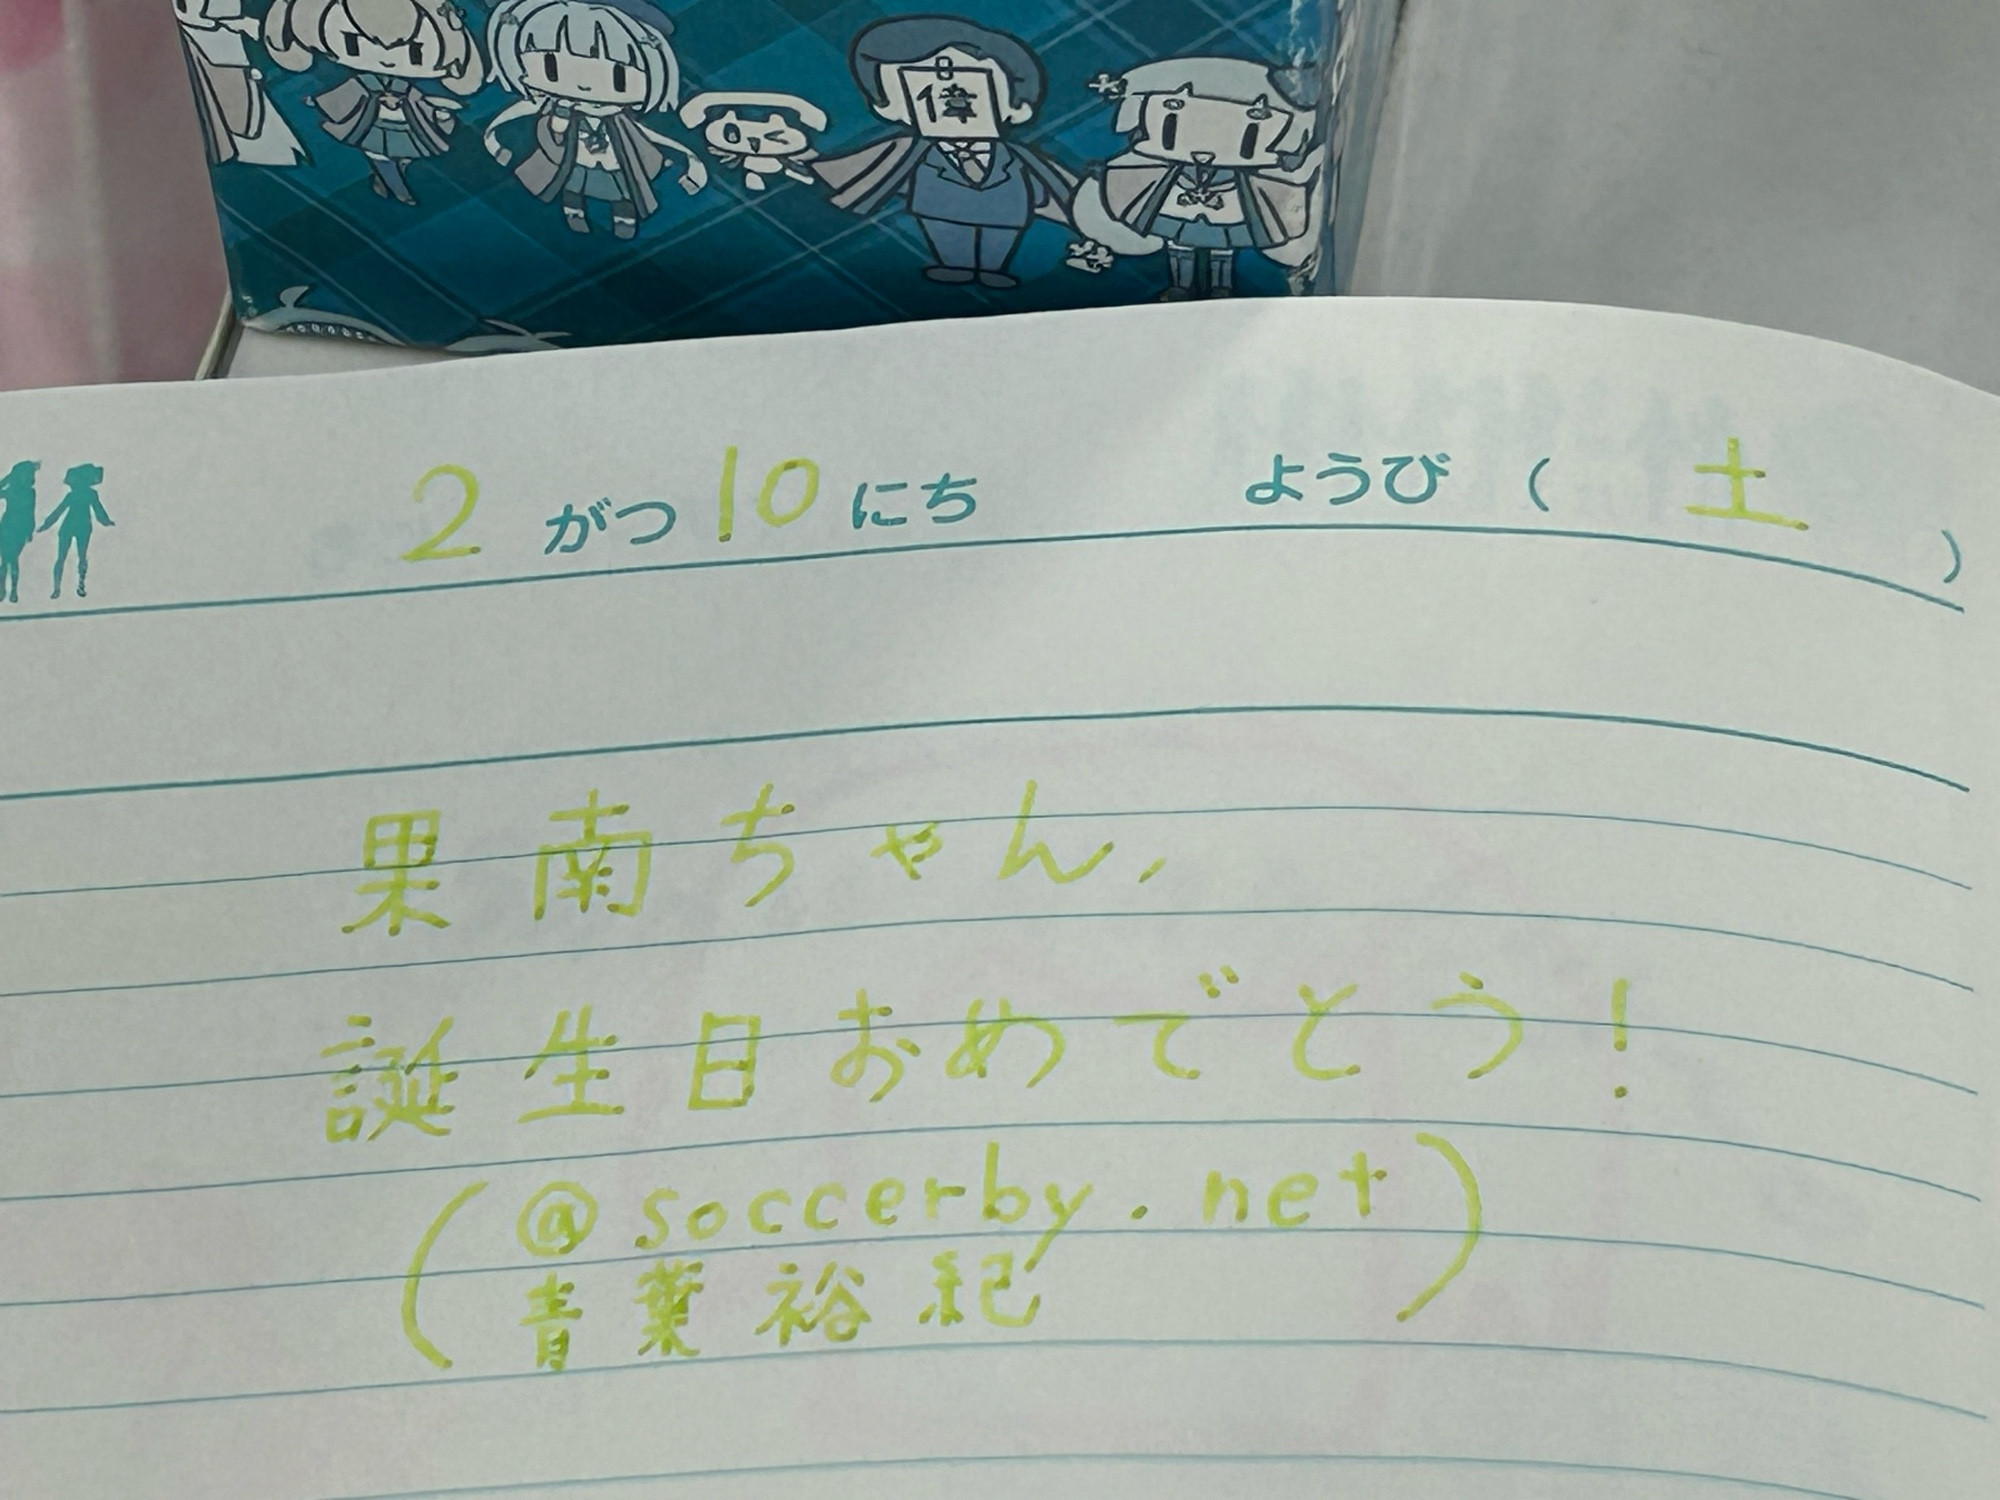 偉
2がつ10にち ようび(土)
果南ちゃん,
誕生日おめでとう!
(@soccerby.net
青葉裕紀)